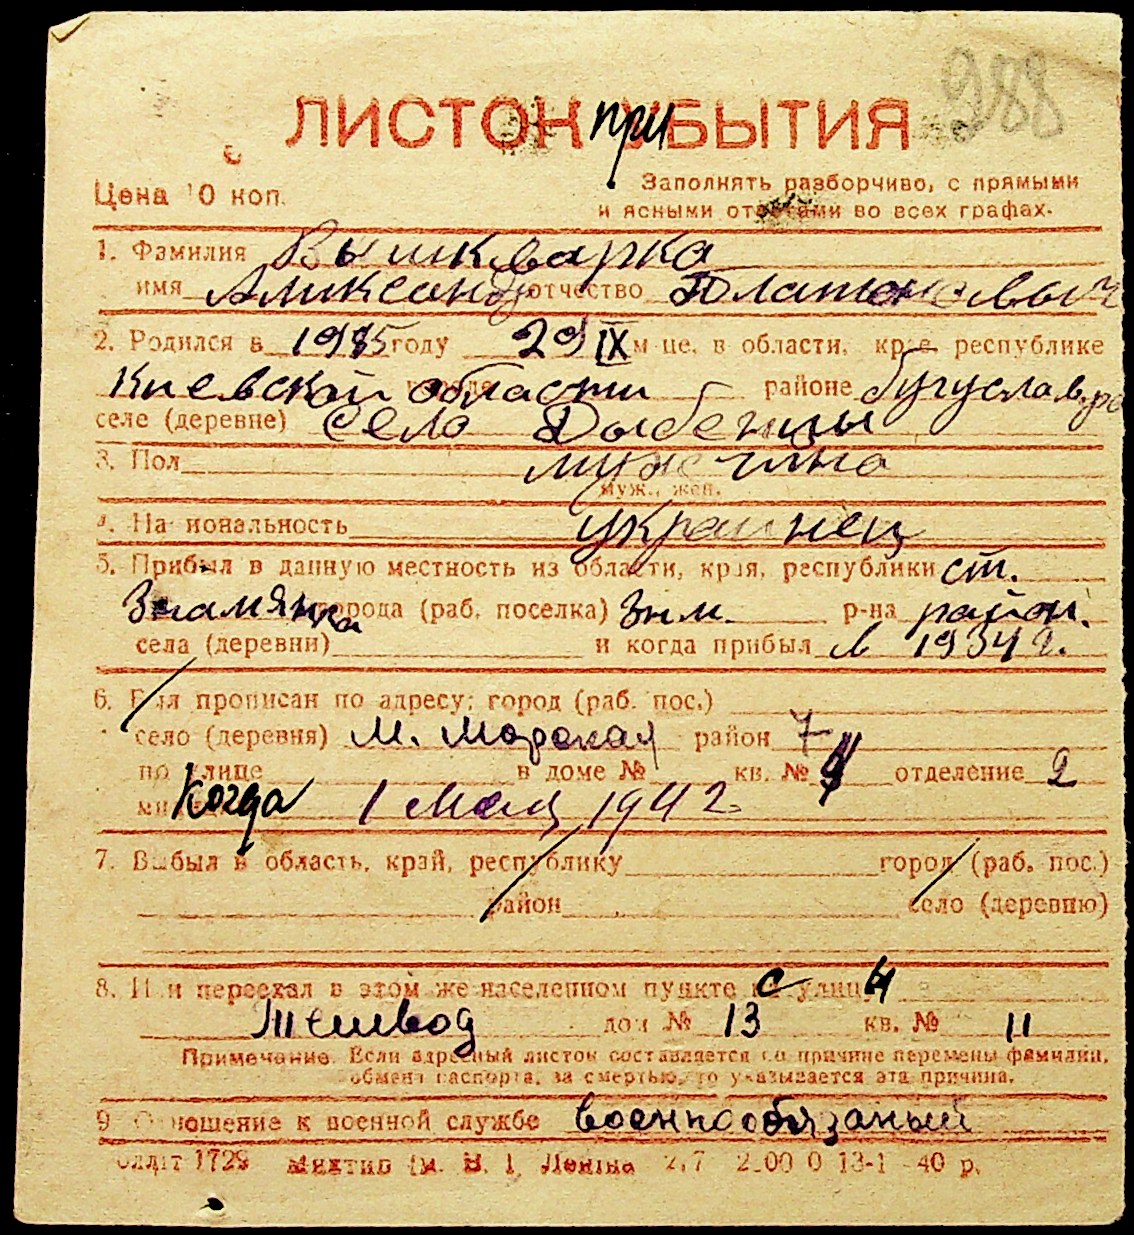 988
ЛИСТОК при УБЫТИЯ
Цена 10 коп.
Заполнять разборчиво, с прямыми
и ясными ответами во всех графах.
1. Фамилия Вышкварка
имя Аликсандр отчество Платоновыч
2. Родился в году 29 IX м-це, в области, крае, республике
Киевской области районе бугуслав.
селе (деревне) село Дыбенцы
3. Пол мужчина
муж., жен.
4. Национальность украинец
5. Прибыл в данную местность из области, края, республики ст.
Знамянка города (раб. поселка) Знм. р-на район.
села (деревни) и когда прибыл в 1934 г.
6. Был прописан по адресу: город (раб. пос.)
село (деревня) М. Морская район 7
по улице в доме № кв. № отделение 2
Когда 1 мая 1942
7. Выбыл в область, край, республику город (раб. пос.)
район село (деревню)
8. Или переехал в этом же населенном пункте с улицы
дом № 13 кв. № 11
Примечание. Если адресный листок составляется по причине перемены фамилии,
обмена паспорта, за смертью, то указывается эта причина.
9. Отношение к военной службе военнообязаный
1729 Миктип им. В. І. Леніна 40 р.